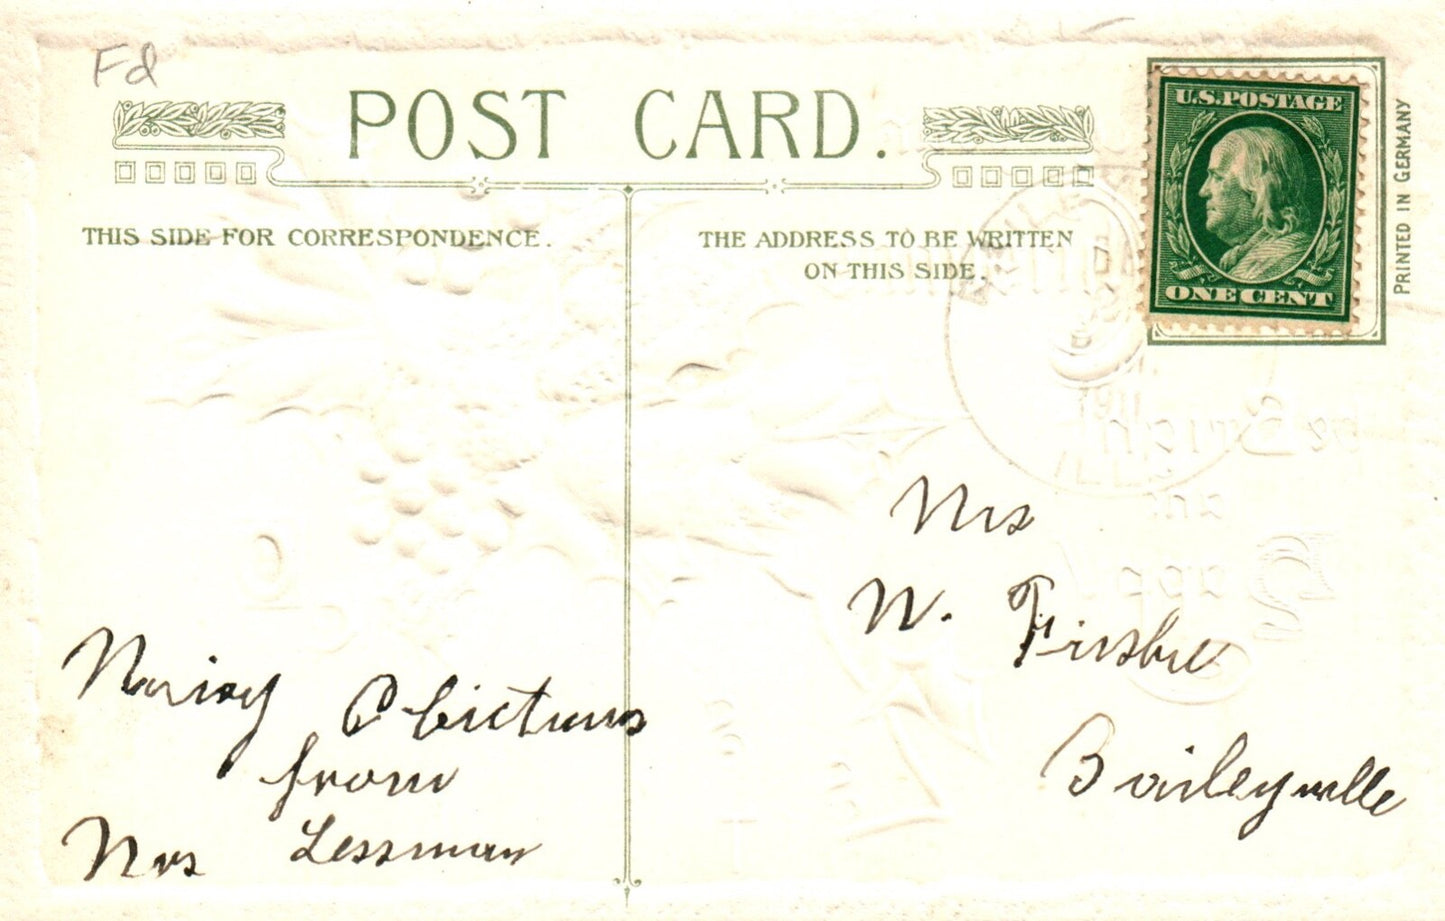 Fd
POST CARD.
THIS SIDE FOR CORRESPONDENCE.
THE ADDRESS TO BE WRITTEN
ON THIS SIDE.
U.S. POSTAGE
ONE CENT
PRINTED IN GERMANY
1911
ILL.
Mrs
W.
Baileyville
from
Mrs Lessman